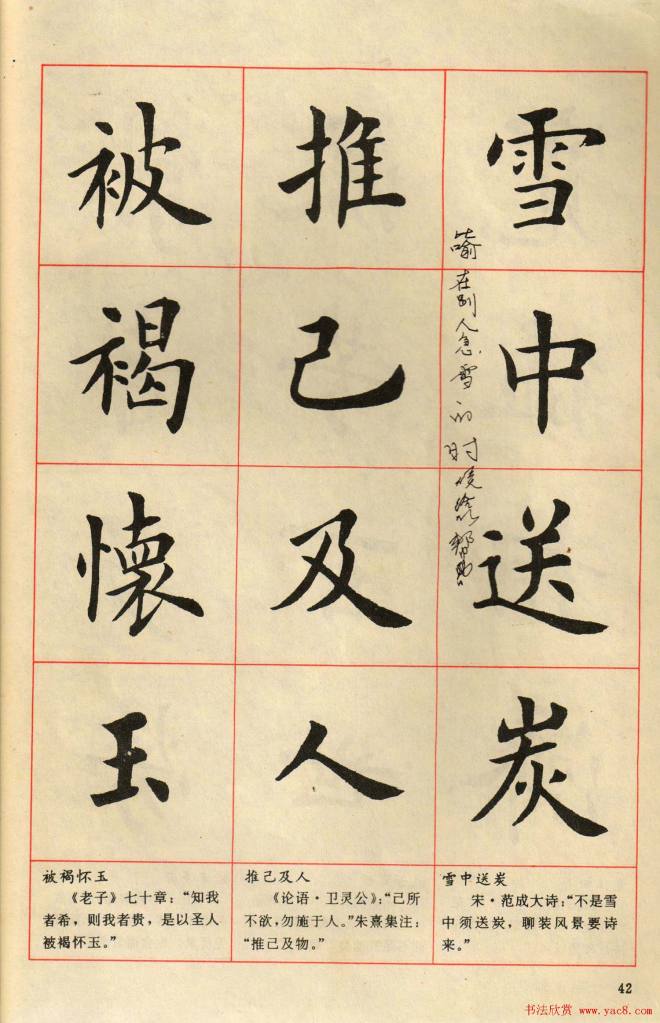 雪中送炭
推己及人
被褐懷玉
喻在别人急需的时候给以帮助
被褐怀玉
《老子》七十章：“知我
者希，则我者贵，是以圣人
被褐怀玉。”
推己及人
《论语·卫灵公》：“己所
不欲，勿施于人。”朱熹集注：
“推己及物。”
雪中送炭
宋·范成大诗：“不是雪
中须送炭，聊装风景要诗
来。”
42
书法欣赏 www.yac8.com